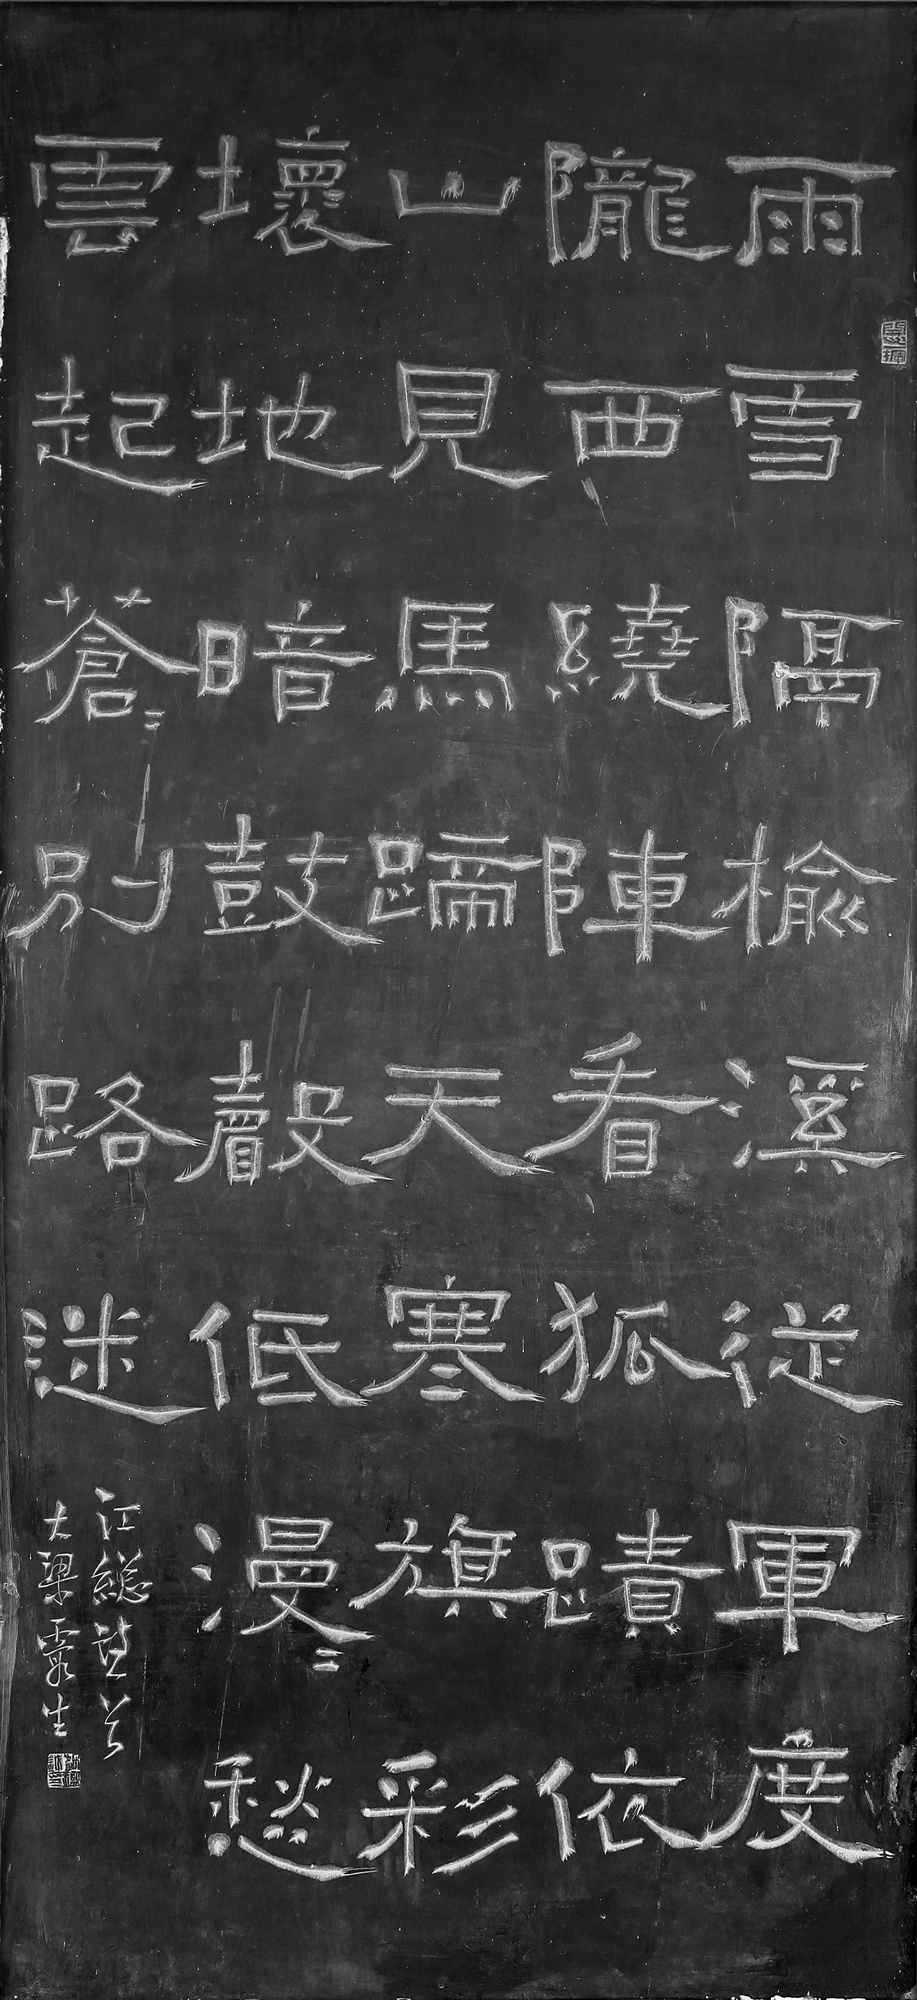 雨雪隔榆溪從軍度
隴西繞陣看狐蹟依
山見馬蹄天寒旗彩
壞地暗鼓聲低漫〻愁
雲起蒼〻別路迷
江總
大梁